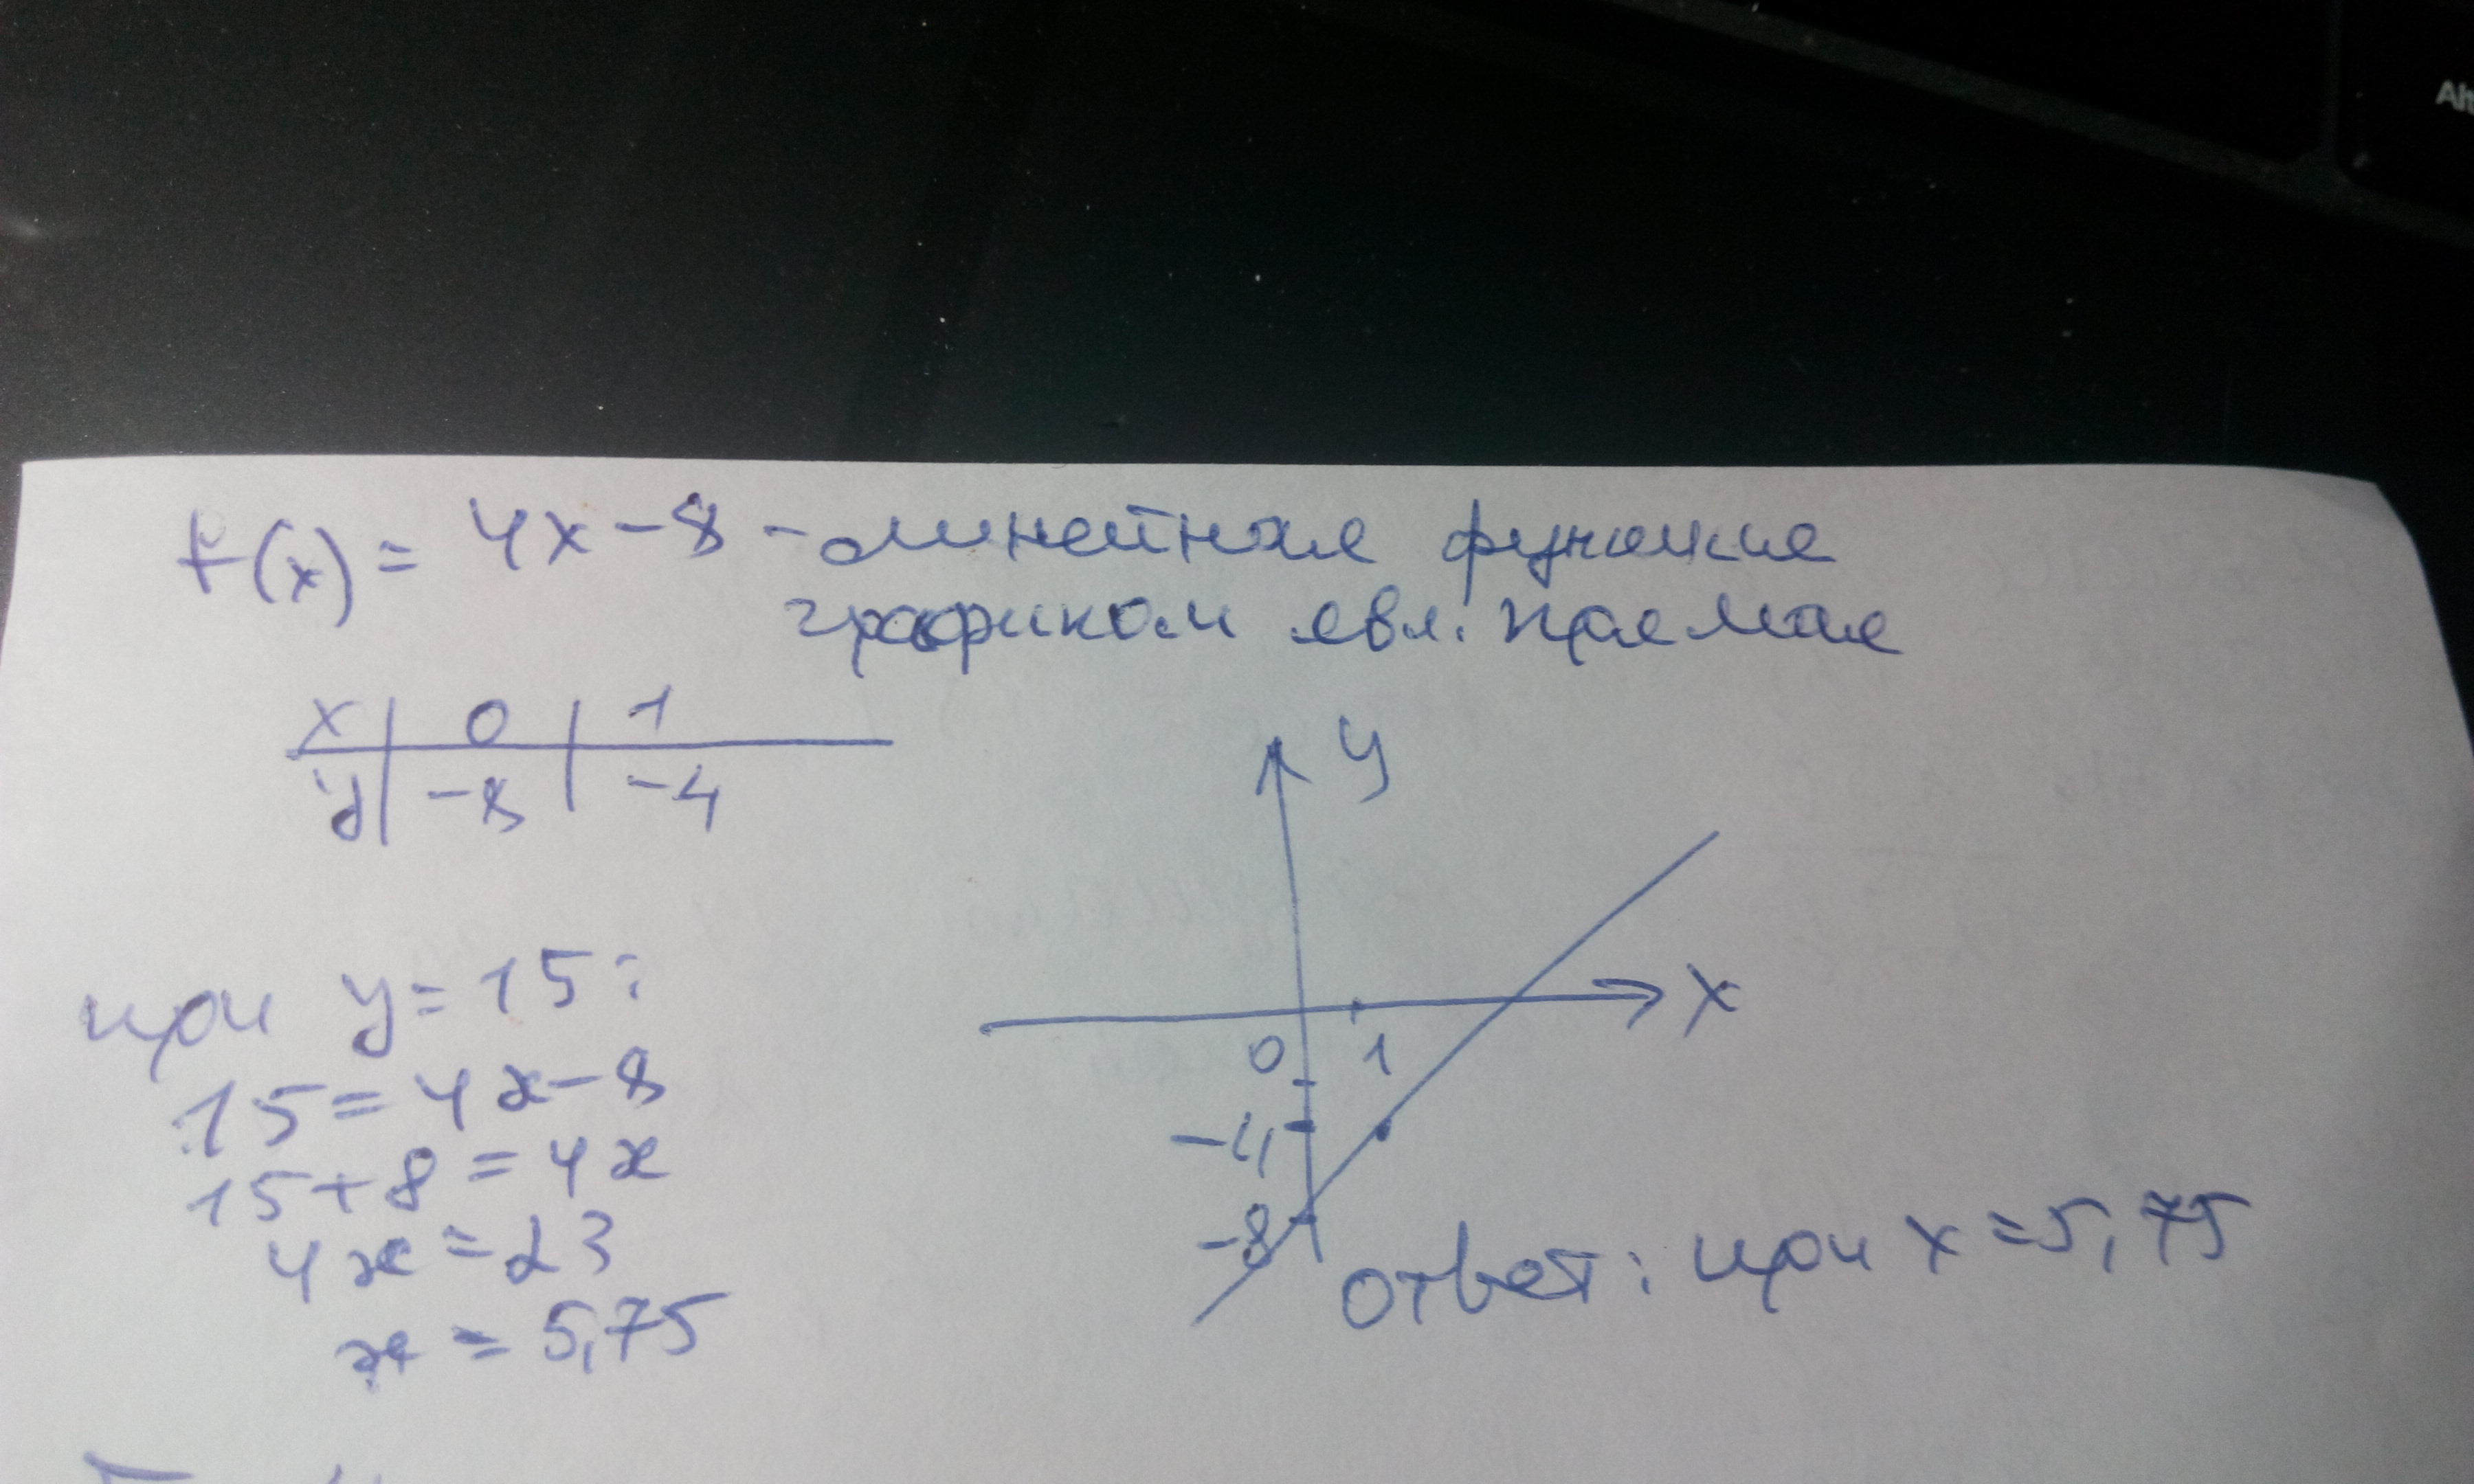 f(x) = 4x - 8 - линейная функция
графиком явл. прямая
x | 0 | 1
y | -8 | -4
при y = 15:
15 = 4x - 8
15 + 8 = 4x
4x = 23
x = 5,75
y
x
0 1
-4
-8
ответ: при x = 5,75
Alt